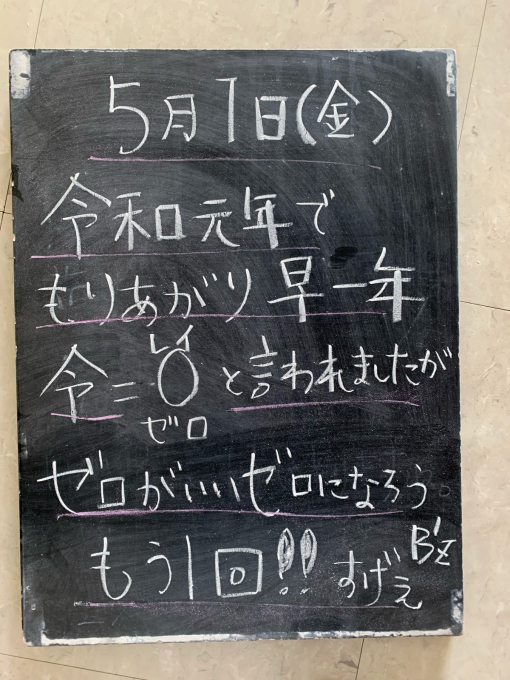 5月1日(金)
令和元年で
もりあがり早一年
レイ
令=0と言われましたが
ゼロ
ゼロがいいゼロになろう。
もう1回!!すげぇB'z